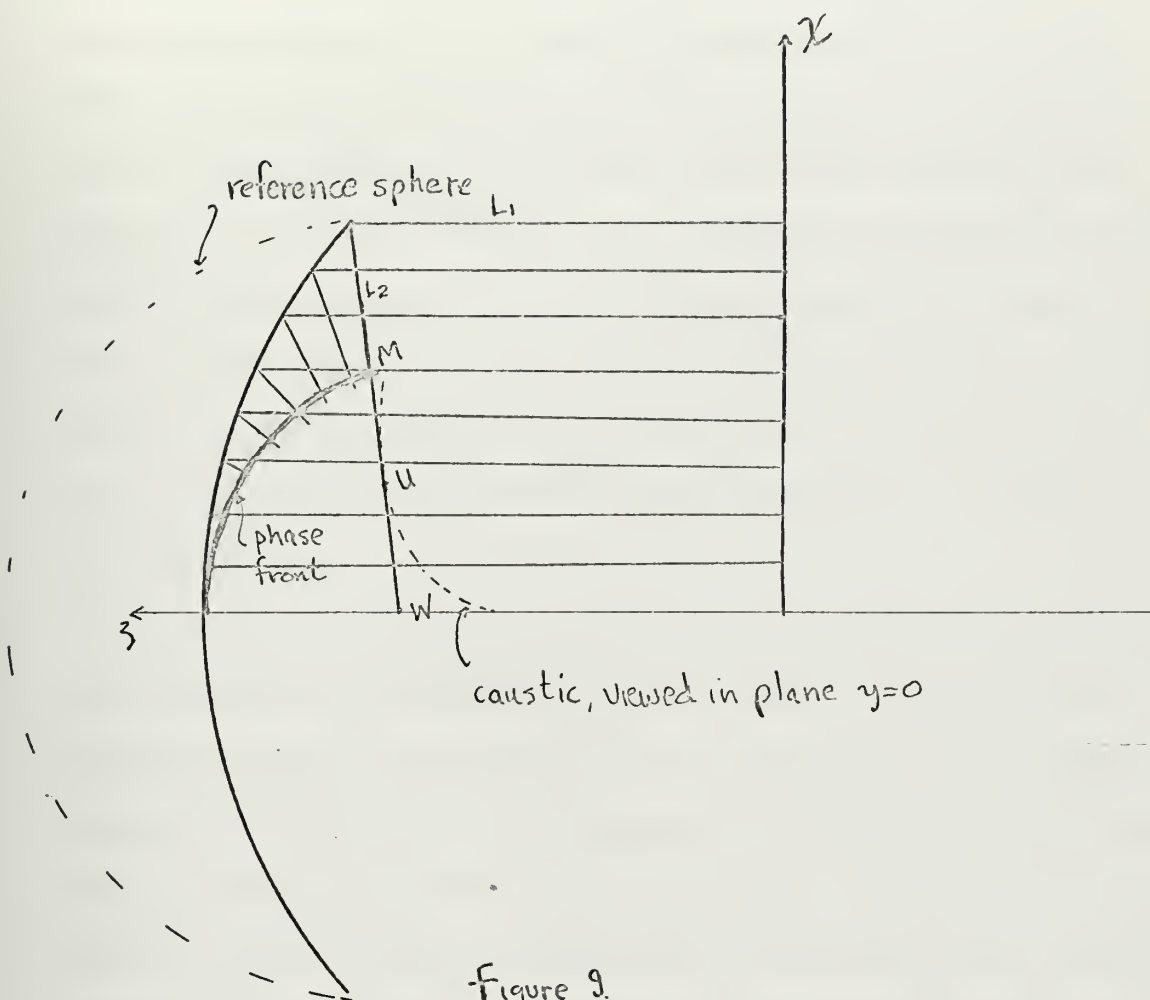 x
reference sphere
L1
L2
M
U
phase
front
W
z
caustic, viewed in plane y=0
Figure 9.